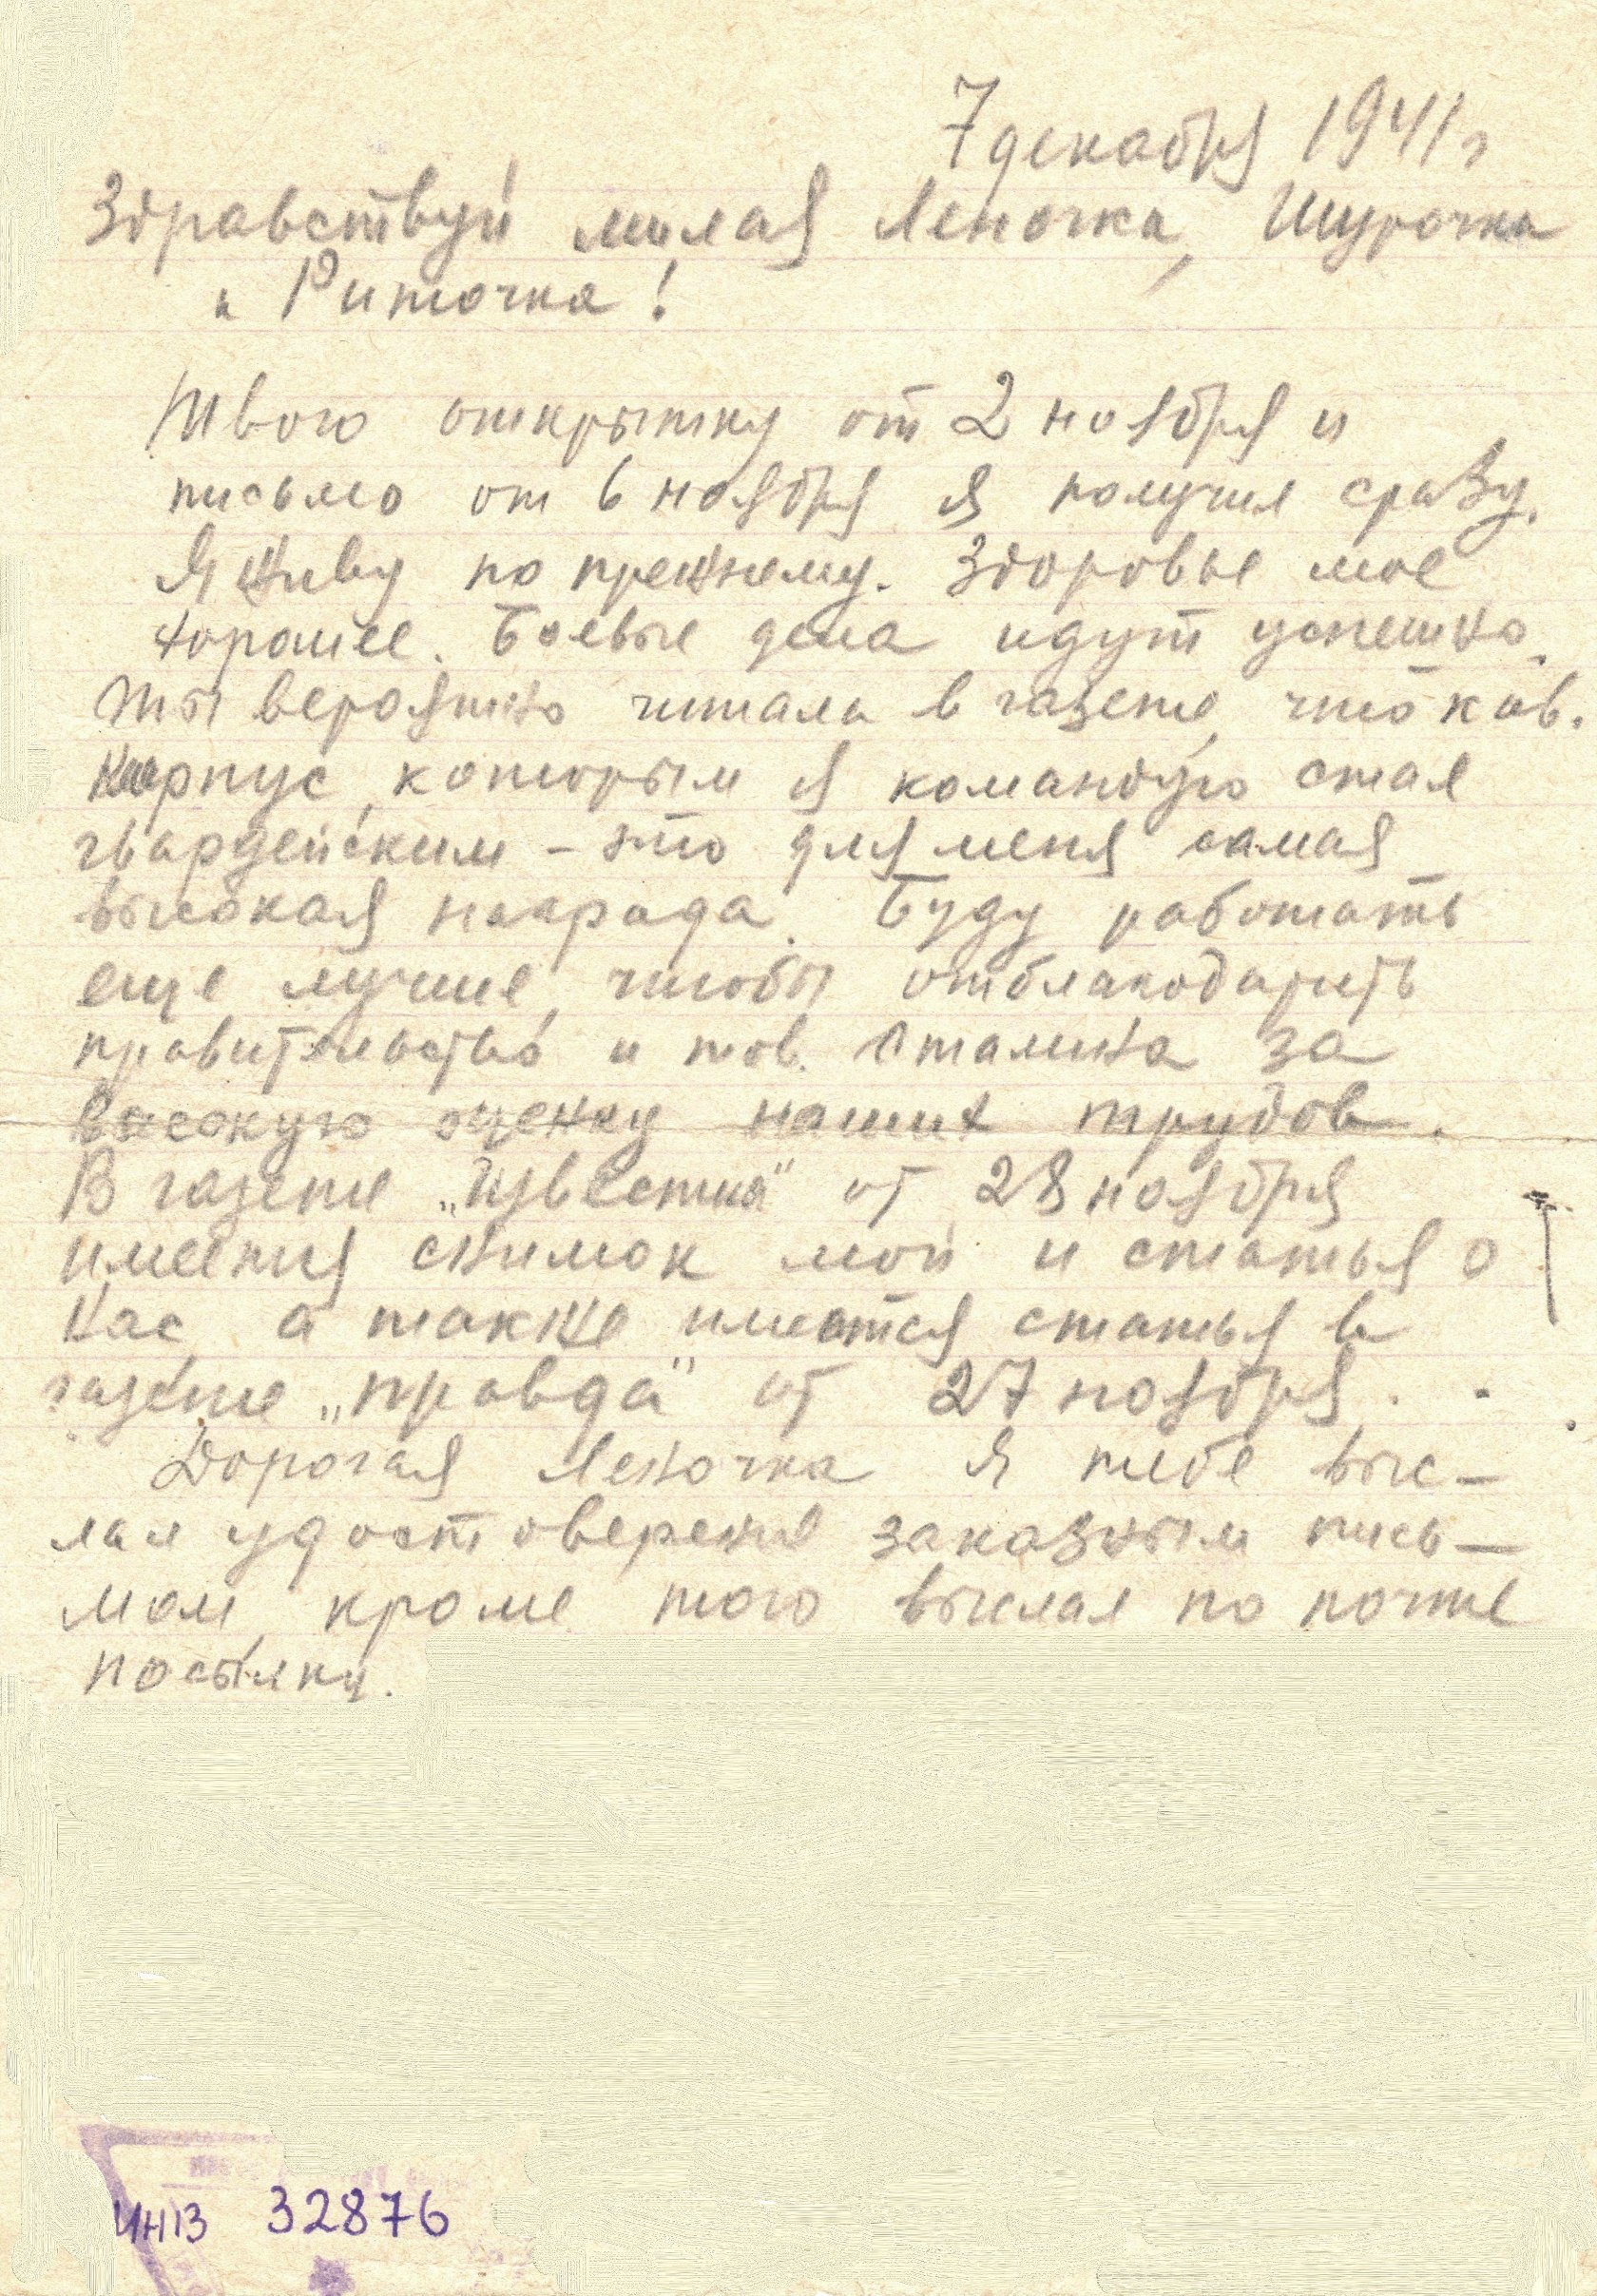 7 декабря 1941 г
Здравствуй милая Леночка, Шурочка
и Риточка!
Твою открытку от 2 ноября и
письмо от 6 ноября я получил сразу.
Я живу по прежнему. Здоровье мое
хорошее. Боевые дела идут успешно.
Ты вероятно читала в газете, что кав.
корпус, которым я командую стал
гвардейским – это для меня самая
высокая награда. Буду работать
еще лучше, чтобы отблагодарить
правительство и тов. Сталина за
высокую оценку наших трудов.
В газете „Известия" от 28 ноября
имеется снимок мой и статья о
нас, а также имеется статья в
газете „Правда" от 27 ноября.
Дорогая Леночка я тебе выс-
лал удостоверение заказным пись-
мом, кроме того выслал по почте
посылку.
32876